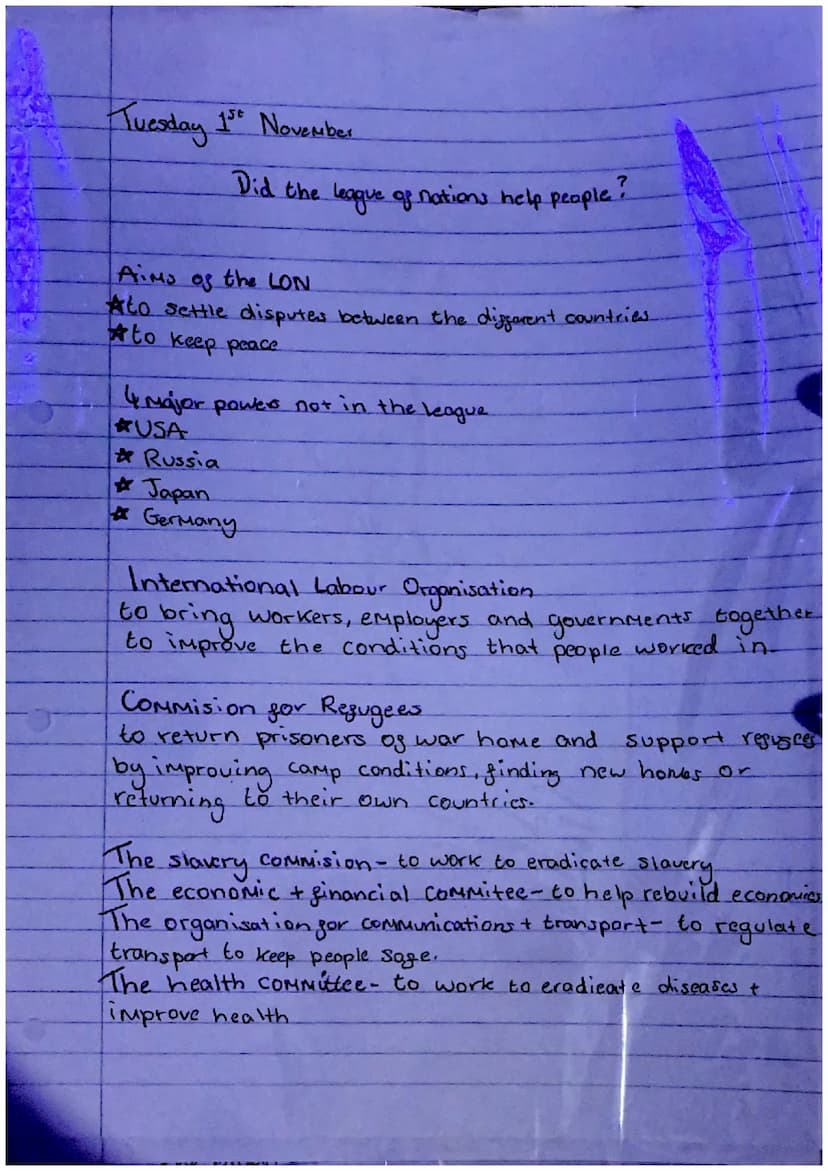 Tuesday 1st November
Did the league of nations help people?
Aims of the LON
★to settle disputes between the different countries
★to keep peace
4 major powers not in the league
★USA
★ Russia
★ Japan
★ Germany
International Labour Organisation
to bring workers, employers and governments together
to improve the conditions that people worked in
Commision for Refugees
to return prisoners of war home and support refugees
by improving camp conditions, finding new homes or
returning to their own countries.
The slavery commision - to work to eradicate slavery
The economic + financial commitee - to help rebuild economies
The organisation for communications + transport - to regulate
transport to keep people safe.
The health committee - to work to eradicate diseases +
improve health